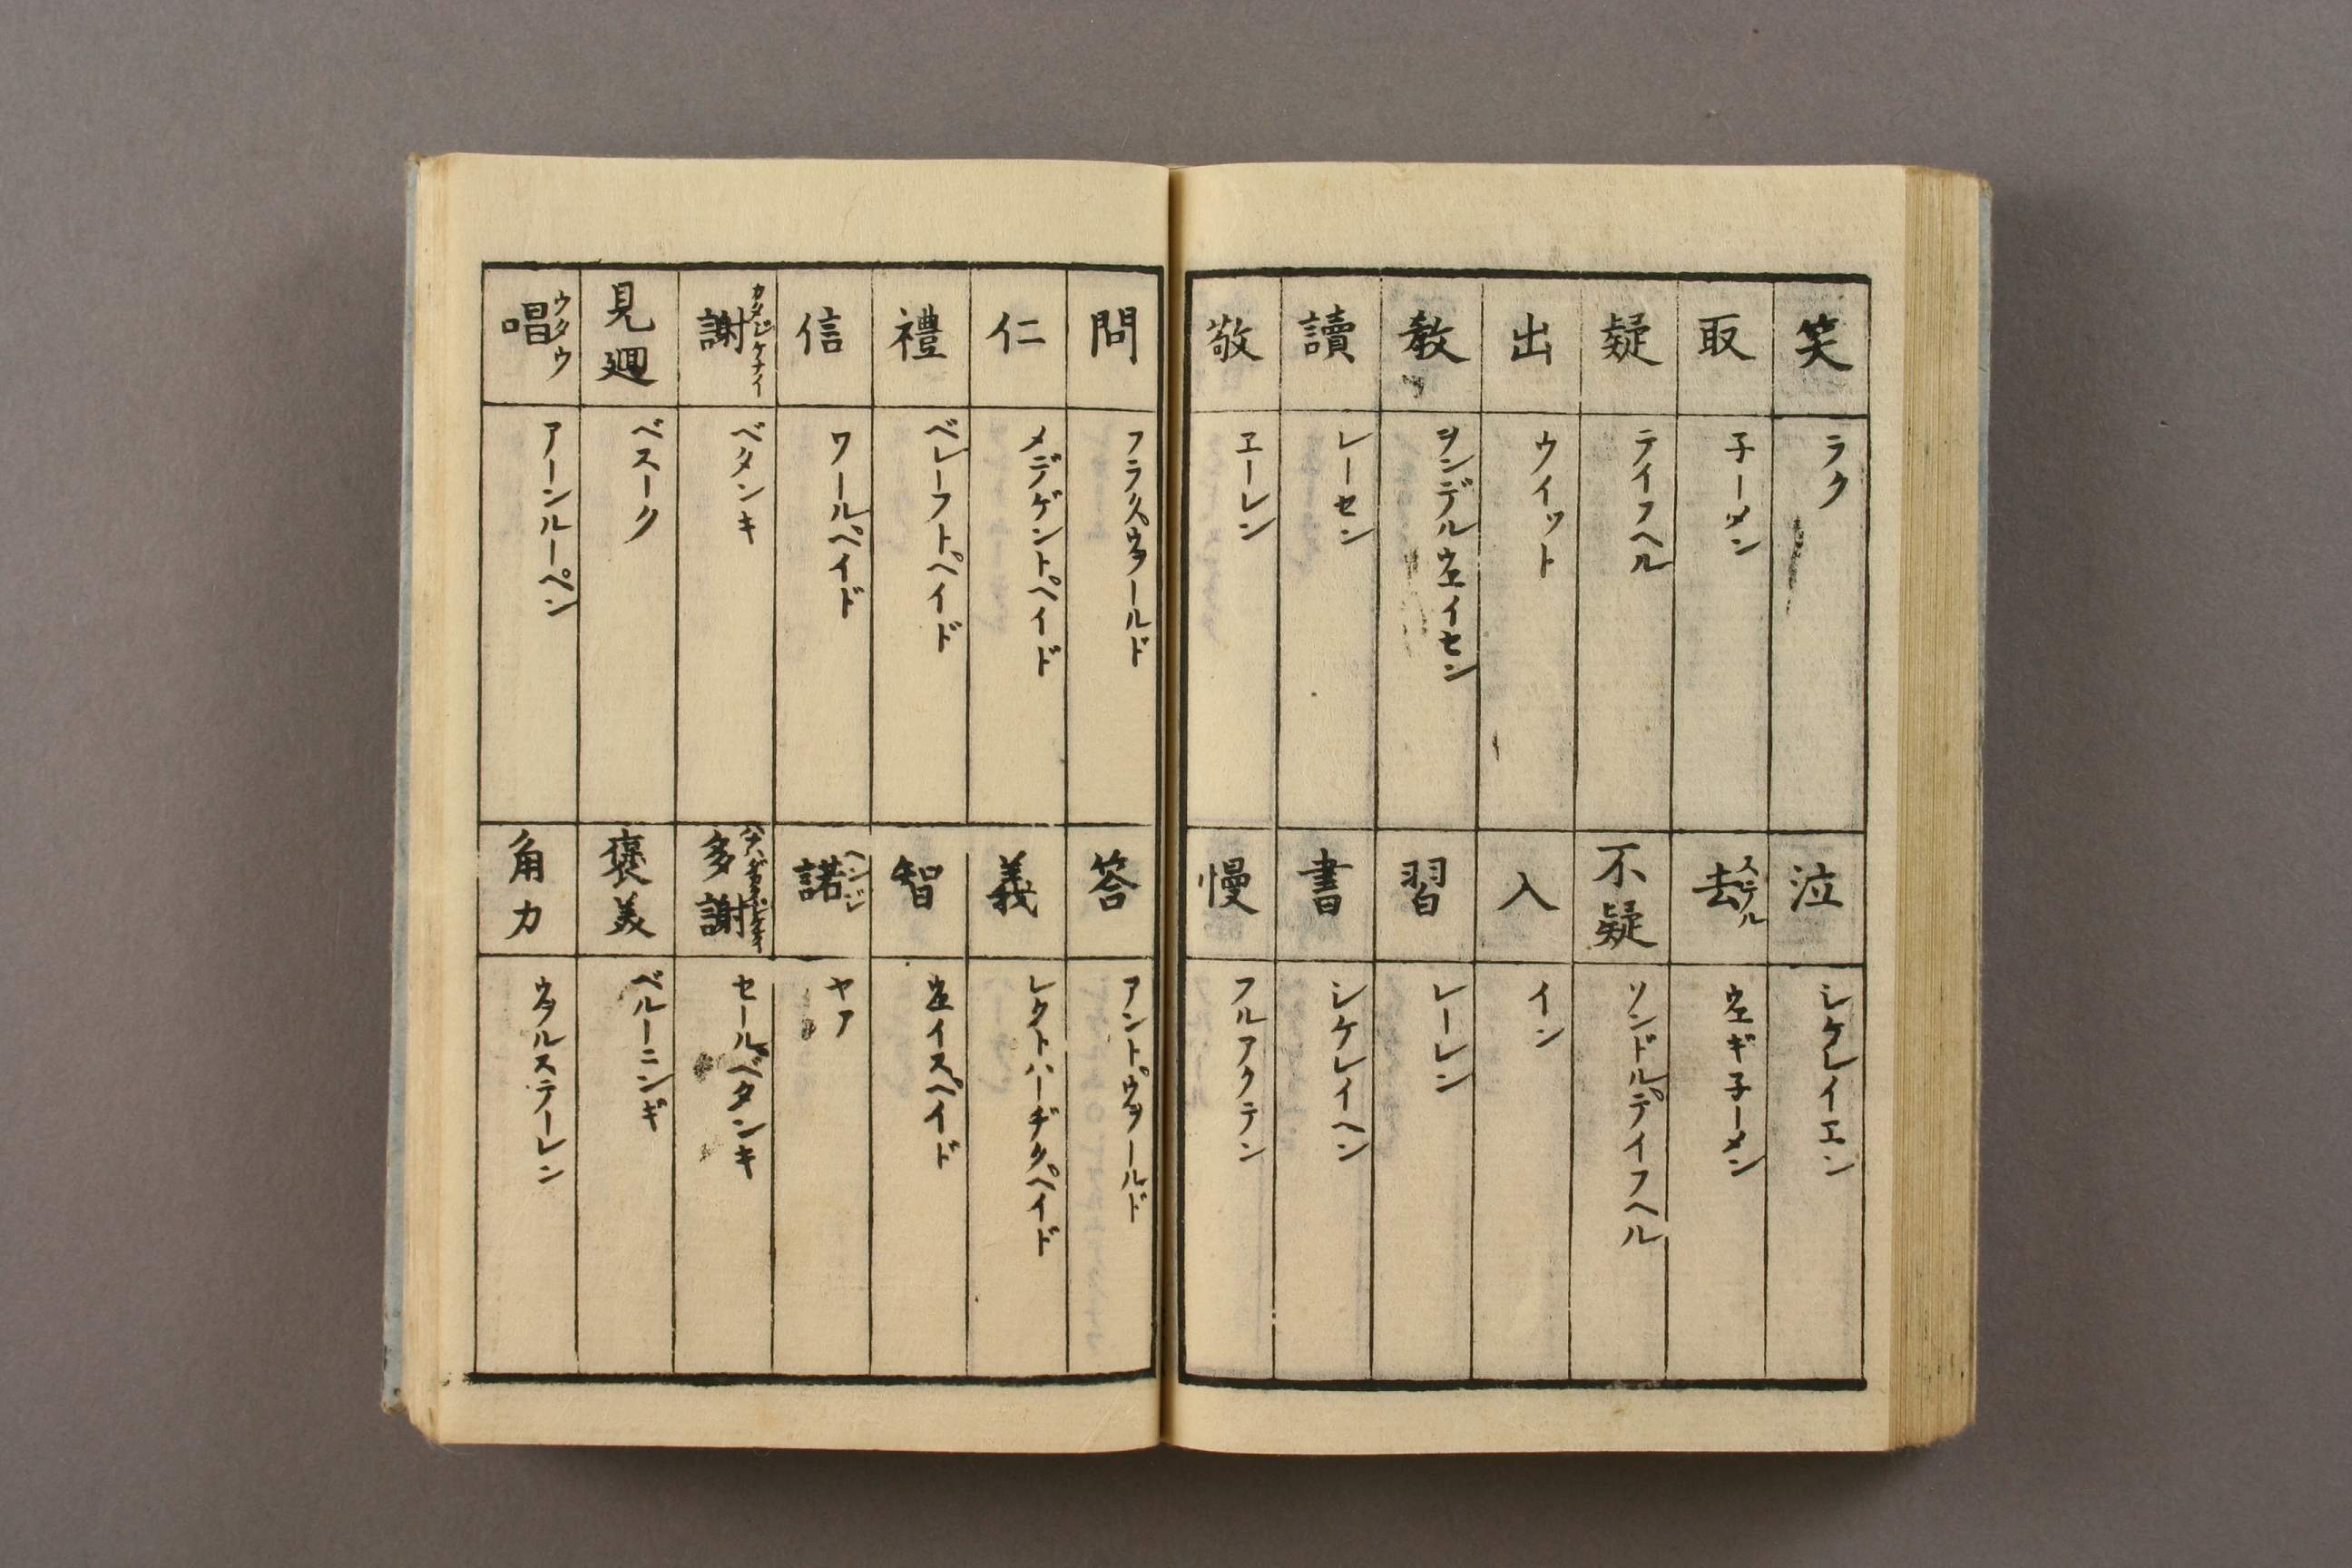 笑 ラク
取 子ーメン
疑 テイフヘル
出 ウイット
教 ヲンデルウエイセン
讀 レーセン
敬 ヱーレン
泣 シケレイエン
去 ステル ウエギ子ーメン
不疑 ソンドルテイフヘル
入 イン
習 レーレン
書 シケレイヘン
慢 フルアクテン
問 フラクスウヲールド
仁 メデゲントペイド
禮 ベレーフトペイド
信 ワールペイド
謝 カタジケナイ ベタンキ
見廻 ベスーク
唱 ウタウ アーンルーペン
答 アントウヲールド
義 レクトハーヂクペイド
智 ウエイスペイド
諾 ヘンジ ヤア
多謝 セールベタンキ
褒美 ベルーニンギ
角力 ウヲルステーレン